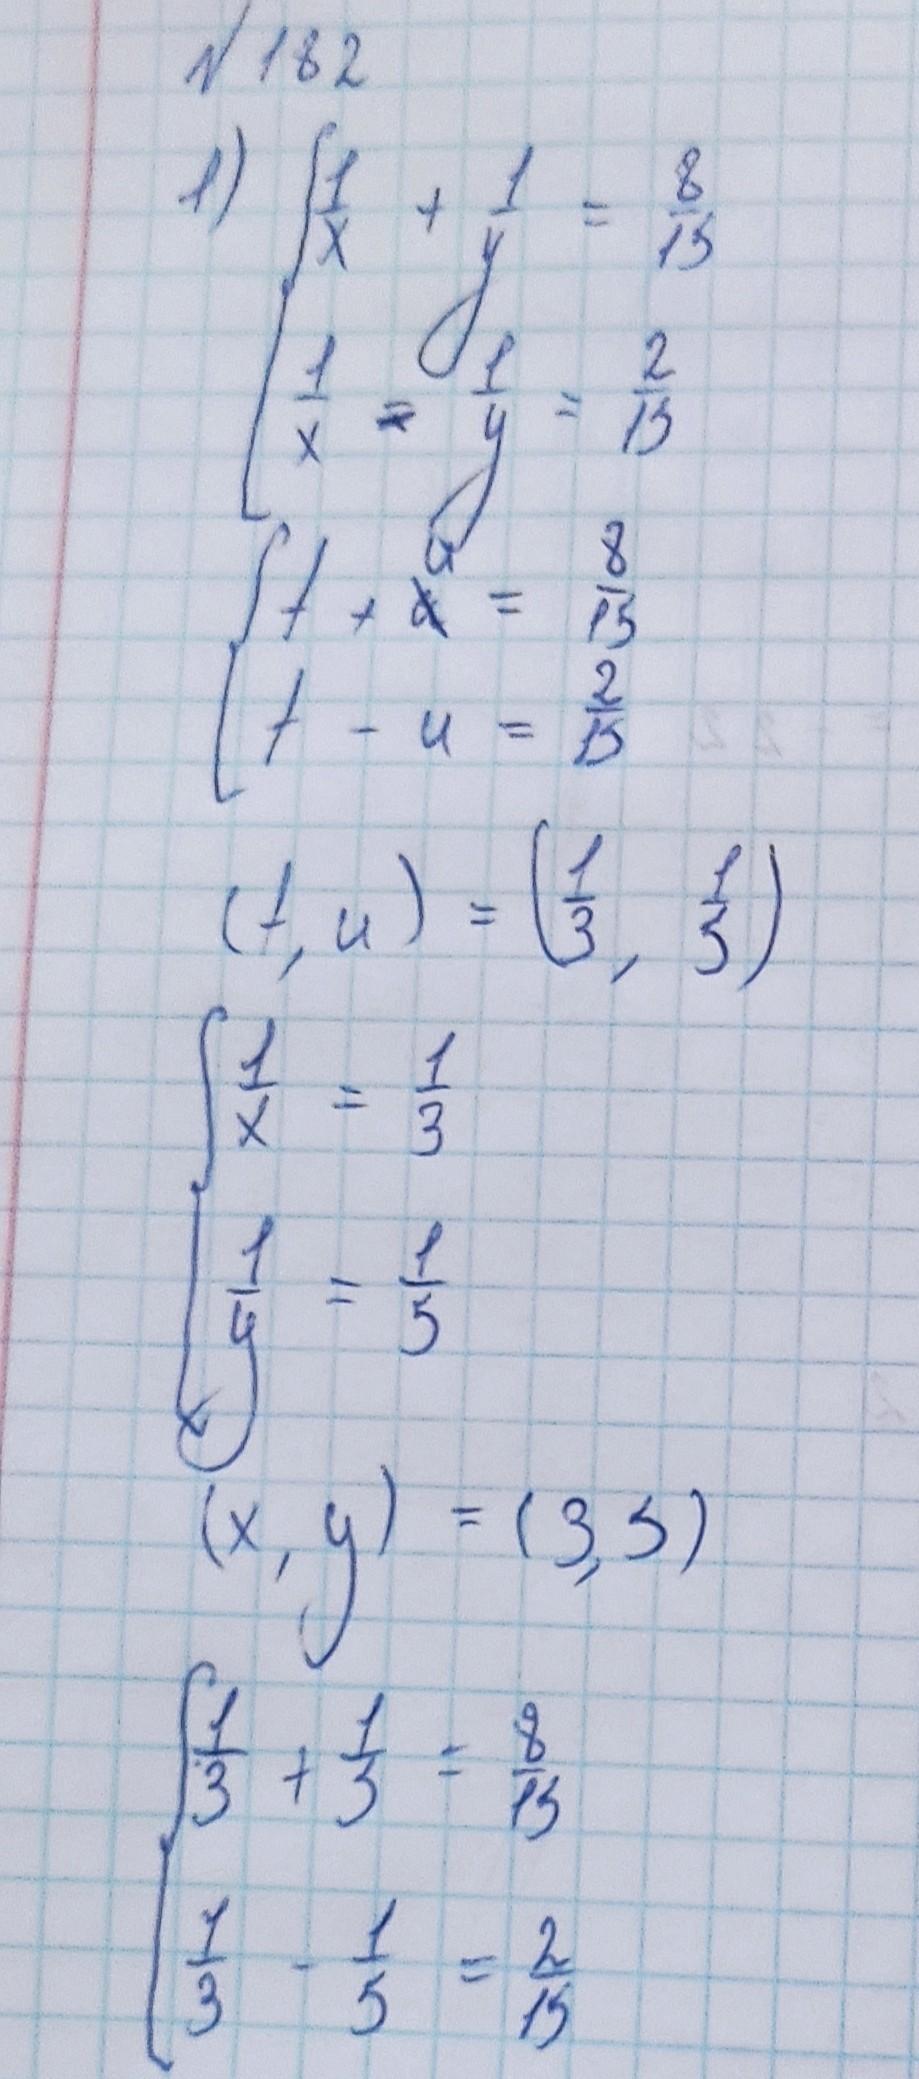 №182
1) { 1/x + 1/y = 8/15
1/x - 1/y = 2/15
{ t + u = 8/15
t - u = 2/15
(t, u) = (1/3, 1/5)
{ 1/x = 1/3
1/y = 1/5
(x, y) = (3, 5)
{ 1/3 + 1/5 = 8/15
1/3 - 1/5 = 2/15